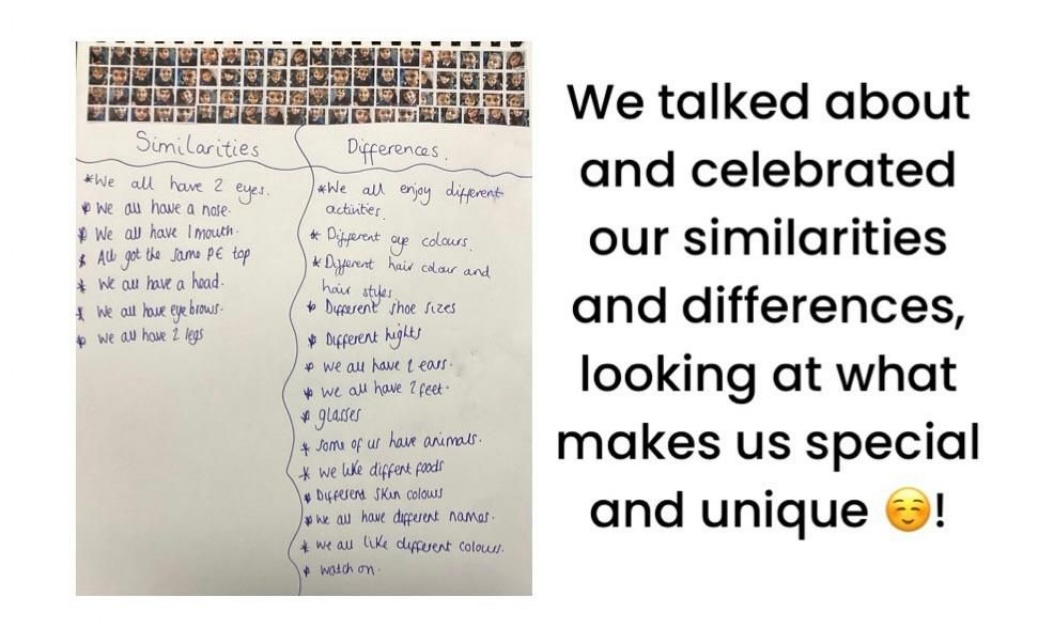 Similarities
*We all have 2 eyes.
* We all have a nose.
* We all have 1 mouth.
* All got the same PE top
* We all have a head.
* We all have eyebrows.
* we all have 2 legs
Differences.
*We all enjoy different
activities.
* Different eye colours.
* Different hair colour and
hair styles
* Different shoe sizes
* Different hights
* we all have 2 ears.
* we all have 2 feet.
* glasses
* some of us have animals.
* we like diffent foods
* Different skin colours
* we all have different names.
* we all like different colours.
* watch on.
We talked about
and celebrated
our similarities
and differences,
looking at what
makes us special
and unique ☺️!